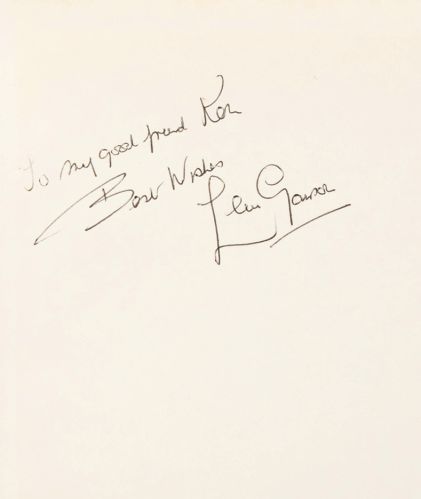 To my good friend Ken
Best Wishes
Len Ganson